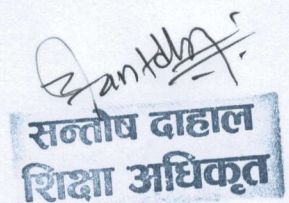 सन्तोष दाहाल
शिक्षा अधिकृत